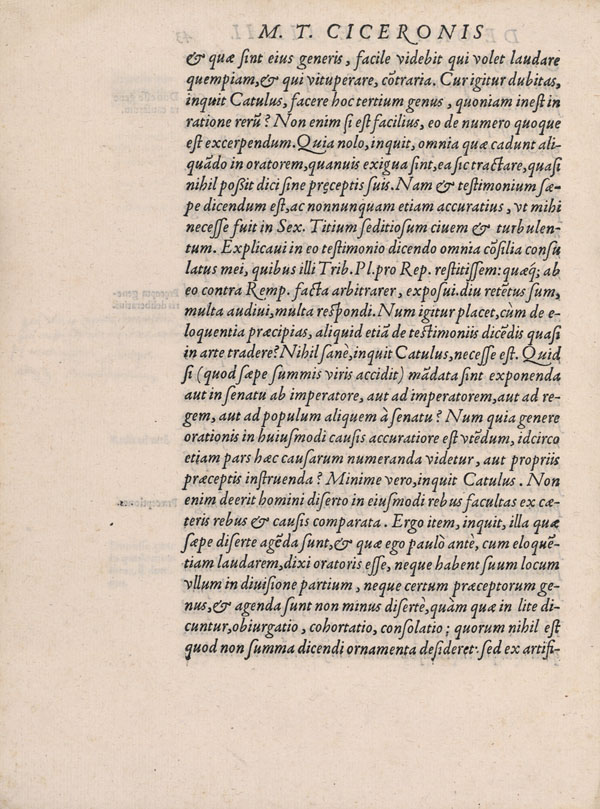 M. T. CICERONIS
& quæ sint eius generis, facile videbit qui volet laudare
quempiam,& qui vituperare, cõtraria. Cur igitur dubitas,
inquit Catulus, facere hoc tertium genus, quoniam inest in
ratione rerũ? Non enim si est facilius, eo de numero quoque
est excerpendum. Quia nolo, inquit, omnia quæ cadunt ali-
quãdo in oratorem, quanuis exigua sint, ea sic tractare, quasi
nihil possit dici sine pręceptis suis. Nam & testimonium sæ-
pe dicendum est, ac nonnunquam etiam accuratius, vt mihi
necesse fuit in Sex. Titium seditiosum ciuem & turbulen-
tum. Explicaui in eo testimonio dicendo omnia cõsilia consu
latus mei, quibus illi Trib. Pl. pro Rep. restitissem: quæq́; ab
eo contra Remp. facta arbitrarer, exposui. diu retẽtus sum,
multa audiui, multa respondi. Num igitur placet, cùm de e-
loquentia præcipias, aliquid etiã de testimoniis dicẽdis quasi
in arte tradere? Nihil sanè, inquit Catulus, necesse est. Quid
si (quod sæpe summis viris accidit) mãdata sint exponenda
aut in senatu ab imperatore, aut ad imperatorem, aut ad re-
gem, aut ad populum aliquem à senatu? Num quia genere
orationis in huiusmodi causis accuratiore est vtẽdum, idcirco
etiam pars hæc causarum numeranda videtur, aut propriis
præceptis instruenda? Minime vero, inquit Catulus. Non
enim deerit homini diserto in eiusmodi rebus facultas ex cæ-
teris rebus & causis comparata. Ergo item, inquit, illa quæ
sæpe diserte agẽda sunt,& quæ ego paulò antè, cum eloquẽ-
tiam laudarem, dixi oratoris esse, neque habent suum locum
vllum in diuisione partium, neque certum præceptorum ge-
nus,& agenda sunt non minus disertè, quàm quæ in lite di-
cuntur, obiurgatio, cohortatio, consolatio; quorum nihil est
quod non summa dicendi ornamenta desideret: sed ex artifi-